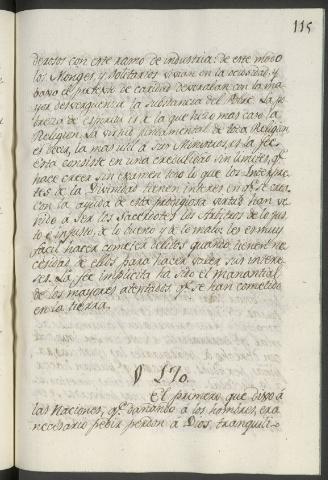 115
derosos con este ramo de industria: de este modo
los Monges, y Solitarios vivian en la ociosidad, y
baxo el pretexto de caridad devoraban con la ma-
yor desverguenza la substancia del Pobre. La po-
breza de espiritu es de la que hizo mas caso la
Religion. La virtud fundamental de toda Religion
es decir, la mas util a sus Ministros, es la fee.
esta consiste en una credulidad sin limites, qe.
hace creer sin examen todo lo que los Interpre-
tes de la Divinidad tienen interes en qe. se crea.
Con la ayuda de esta prodigiosa virtud han ve-
nido à ser los Sacerdotes los Arbitros de lo jus-
to è injusto, de lo bueno y de lo malo: les es muy
facil hacer cometer delitos quando tienen ne-
cesidad de ellos para hacer valer sus intere-
ses. La fee implicita ha sido el manantial
de los mayores atentados qe. se han cometido
en la tierra.
§ 170.
El primero que dixo á
las Naciones, qe. dañando a los hombres, era
necesario pedir perdon à Dios, tranquili-